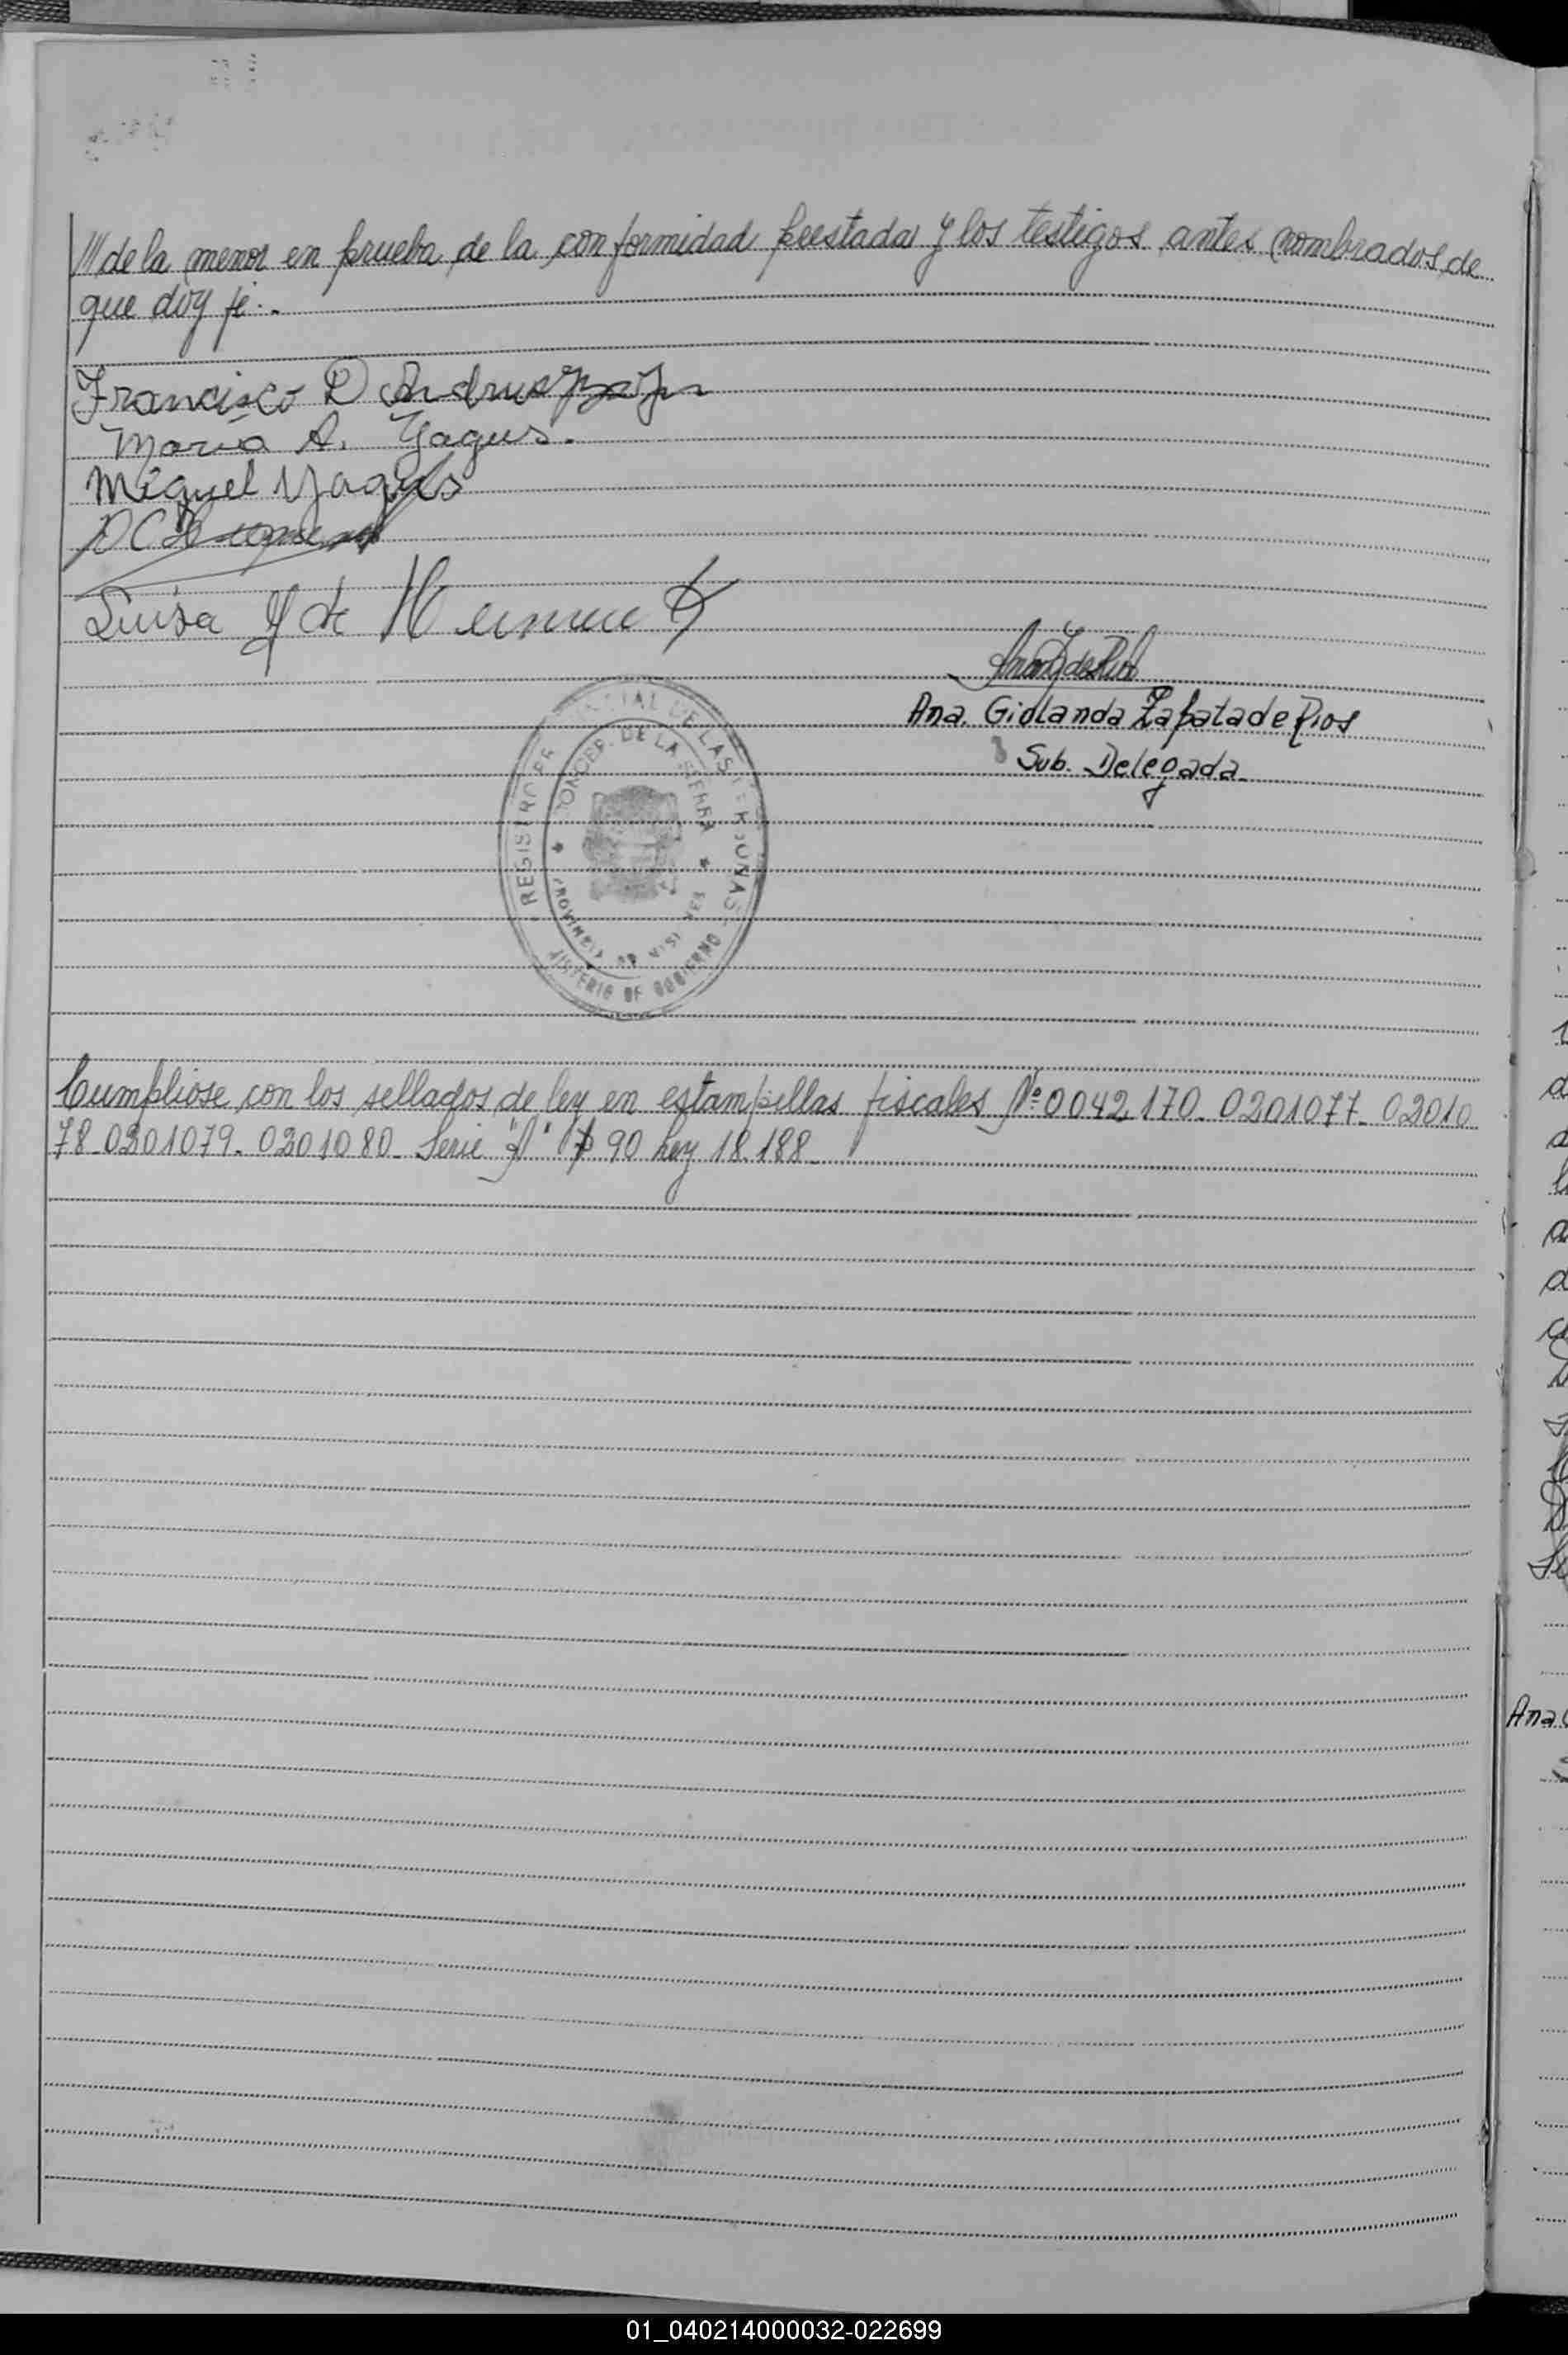 /// de la menor en prueba de la conformidad prestada y los testigos antes nombrados, de
que doy fé.-
Francisco D
Maria A. Yagus.
Miguel Yagus
Luisa Y de
Ana Giolanda Zapata de Rios
Sub. Delegada
REGISTRO DE LAS PERSONAS
CONCEP. DE LA SIERRA
PROVINCIA DE MISIONES
MINISTERIO DE GOBIERNO
Cumpliose con los sellados de ley en estampillas fiscales Nº 0042170. 0201077. 02010
78-0201079. 0201080- Serie "A" $ 90 Ley 18.188-
Ana
01_040214000032-022699